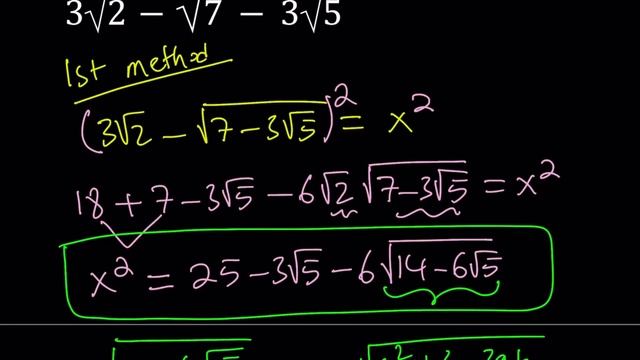 3√2 − √7 − 3√5
1st method
(3√2 − √(7 − 3√5))² = x²
18 + 7 − 3√5 − 6√2 √(7 − 3√5) = x²
x² = 25 − 3√5 − 6√(14 − 6√5)